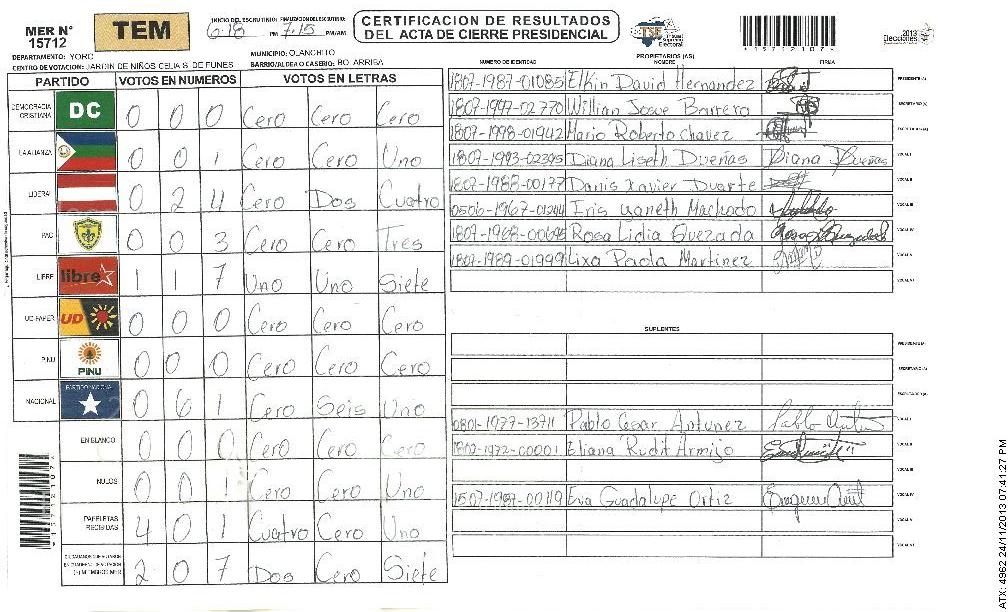 MER N° 15712
TEM
INICIO DEL ESCRUTINIO: 6:18 PM FINALIZACION DEL ESCRUTINIO: 7:15 PM/AM
CERTIFICACION DE RESULTADOS DEL ACTA DE CIERRE PRESIDENCIAL
TSE Tribunal Supremo Electoral
Elecciones 2013
DEPARTAMENTO: YORO
MUNICIPIO: OLANCHITO
CENTRO DE VOTACION: JARDIN DE NIÑOS CELIA S. DE FUNES
BARRIO/ALDEA O CASERIO: BO. ARRIBA
PARTIDO VOTOS EN NUMEROS VOTOS EN LETRAS
DEMOCRACIA CRISTIANA DC 0 0 0 Cero Cero Cero
LA ALIANZA 0 0 1 Cero Cero Uno
LIBERAL 0 2 4 Cero Dos Cuatro
PAC 0 0 3 Cero Cero Tres
LIBRE libre 1 1 7 Uno Uno Siete
UD-FAPER UD 0 0 0 Cero Cero Cero
PINU PINU 0 0 0 Cero Cero Cero
NACIONAL PARTIDO NACIONAL 0 6 1 Cero Seis Uno
EN BLANCO 0 0 0 Cero Cero Cero
NULOS 0 0 1 Cero Cero Uno
PAPELETAS RECIBIDAS 4 0 1 Cuatro Cero Uno
CIUDADANOS QUE VOTARON EN CUADERNO DE VOTACION (+) MIEMBROS MER 2 0 7 Dos Cero Siete
PROPIETARIOS (AS)
NUMERO DE IDENTIDAD NOMBRE FIRMA
1807-1987-01085 Elkin David Hernandez PRESIDENTE(A)
1807-1997-02770 Willian Josue Barrero SECRETARIO(A)
1807-1998-01942 Mario Roberto chavez ESCRUTADOR(A)
1807-1993-02395 Diana Liseth Dueñas Diana Dueñas VOCAL I
1807-1988-00177 Danis Xavier Duarte VOCAL II
0506-1967-01244 Iris Yaneth Machado VOCAL III
1807-1968-00695 Rosa Lidia Quezada VOCAL IV
1807-1989-01999 Lixa Paola Martinez VOCAL V
VOCAL VI
SUPLENTES
PRESIDENTE(A)
SECRETARIO(A)
ESCRUTADOR(A)
0801-1977-13711 Pablo Cesar Antunez VOCAL I
1802-1972-00001 Eliana Rudit Armijo VOCAL II
VOCAL III
1507-1987-00719 Eva Guadalupe Ortiz VOCAL IV
VOCAL V
VOCAL VI
ATX: 4962 24/11/2013 07:41:27 PM